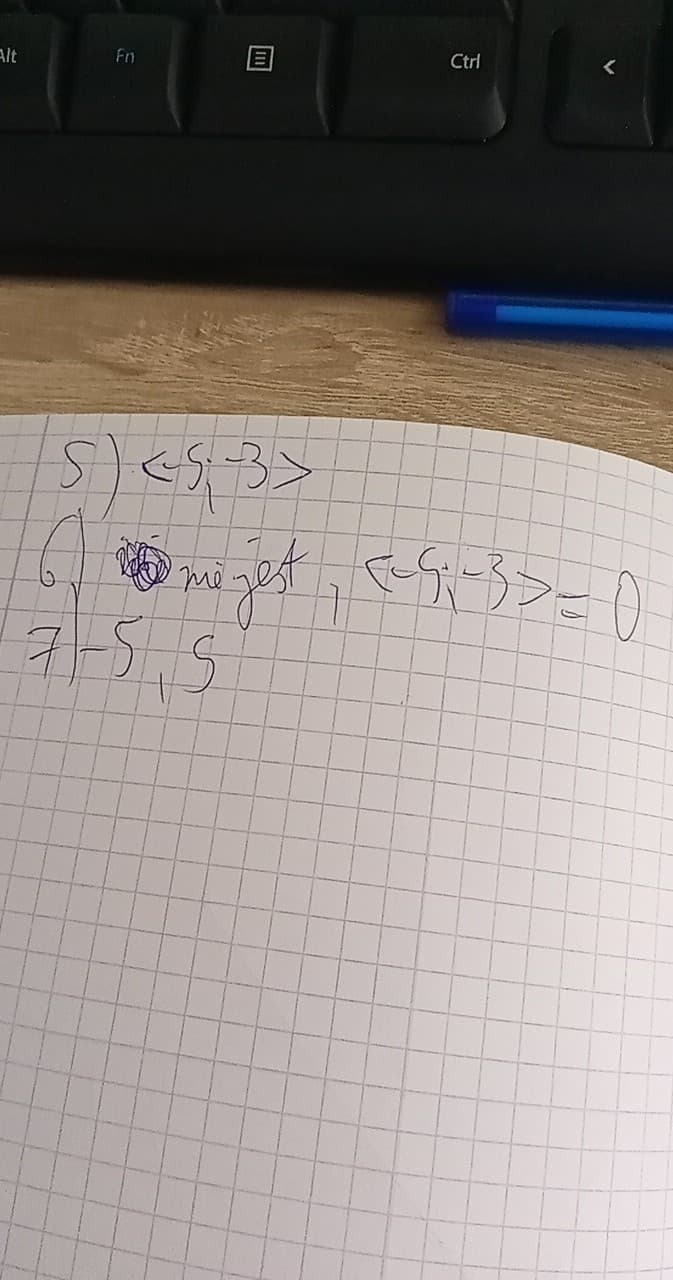 Alt Fn Ctrl <
5) <-5;-3>
6) nie jest, <-5;-3> = 0
7) -5, 5